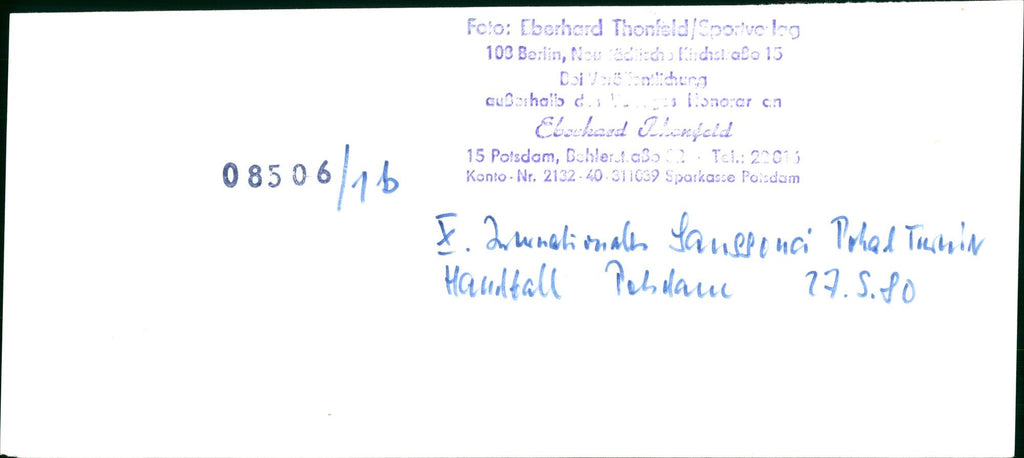 Foto: Eberhard Thonfeld/Sportverlag
108 Berlin, Neustädtische Kirchstraße 15
Bei Veröffentlichung
außerhalb des Verlages Honorar an
Eberhard Thonfeld
15 Potsdam, Tel.:
Konto-Nr. 2132-40-311039 Sparkasse Potsdam
08506/1b
X. Internationales Sanssouci Pokal Turnier
Handball Potsdam 27.5.80